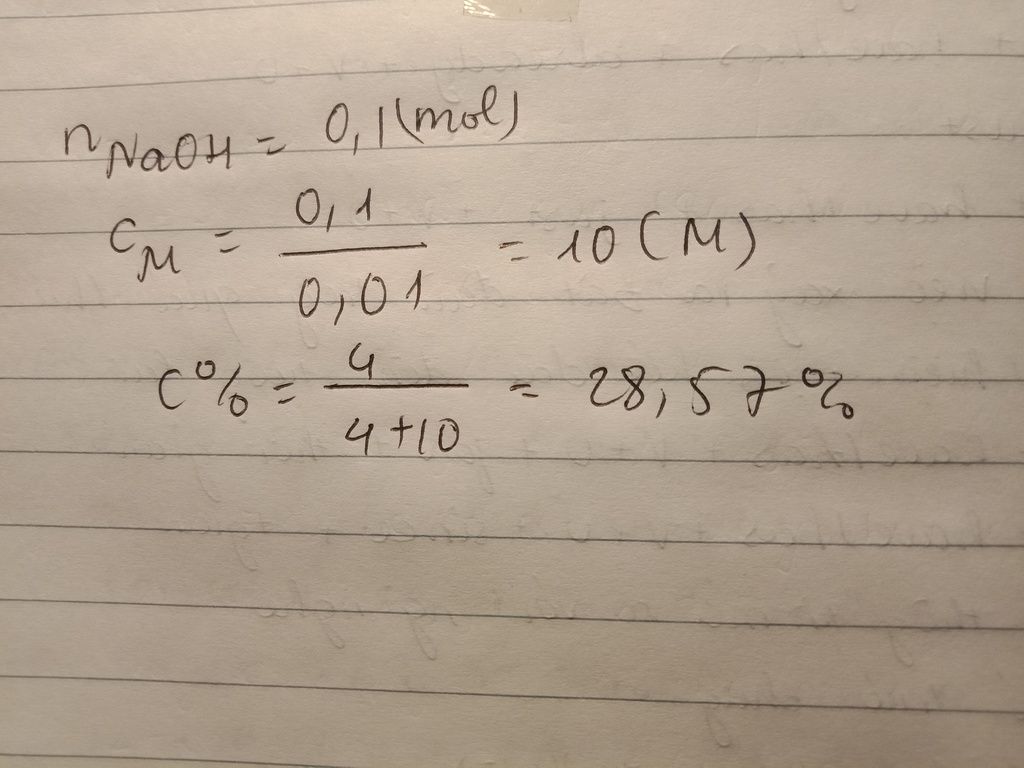 n NaOH = 0,1 (mol)
C M = 0,1 / 0,01 = 10 (M)
C% = 4 / 4+10 = 28,57%